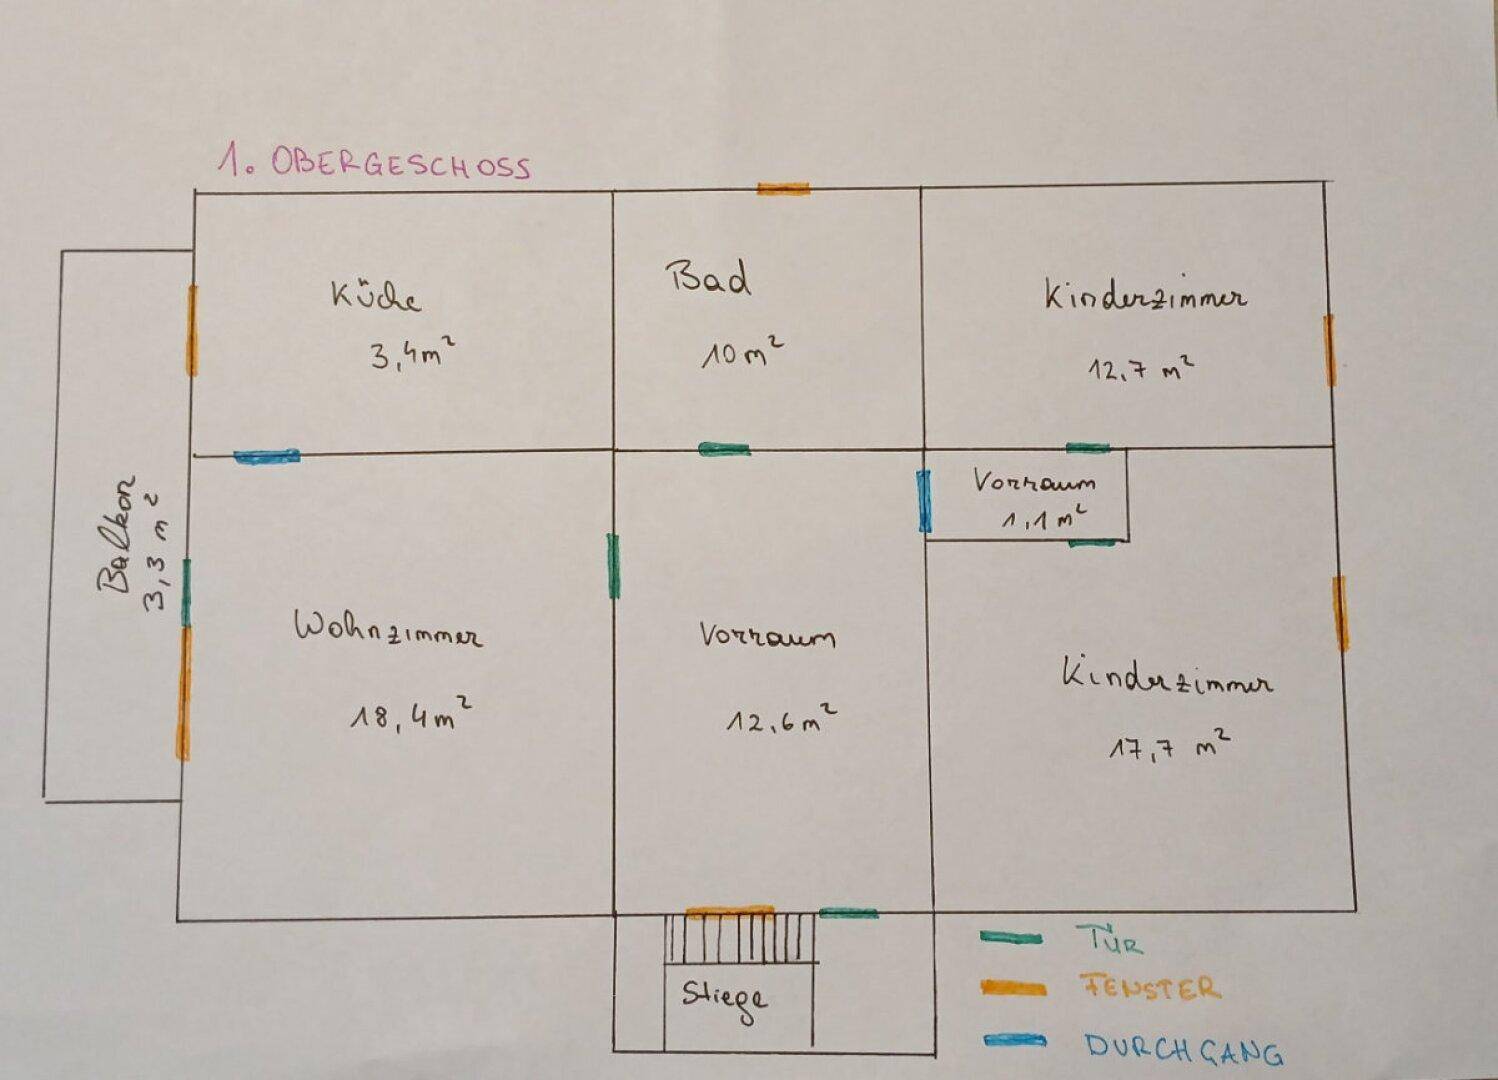 1. OBERGESCHOSS
Küche
3,4m²
Bad
10 m²
Kinderzimmer
12,7 m²
Balkon
3,3 m²
Vorraum
1,1 m²
Wohnzimmer
18,4m²
Vorraum
12,6 m²
Kinderzimmer
17,7 m²
Stiege
TÜR
FENSTER
DURCHGANG